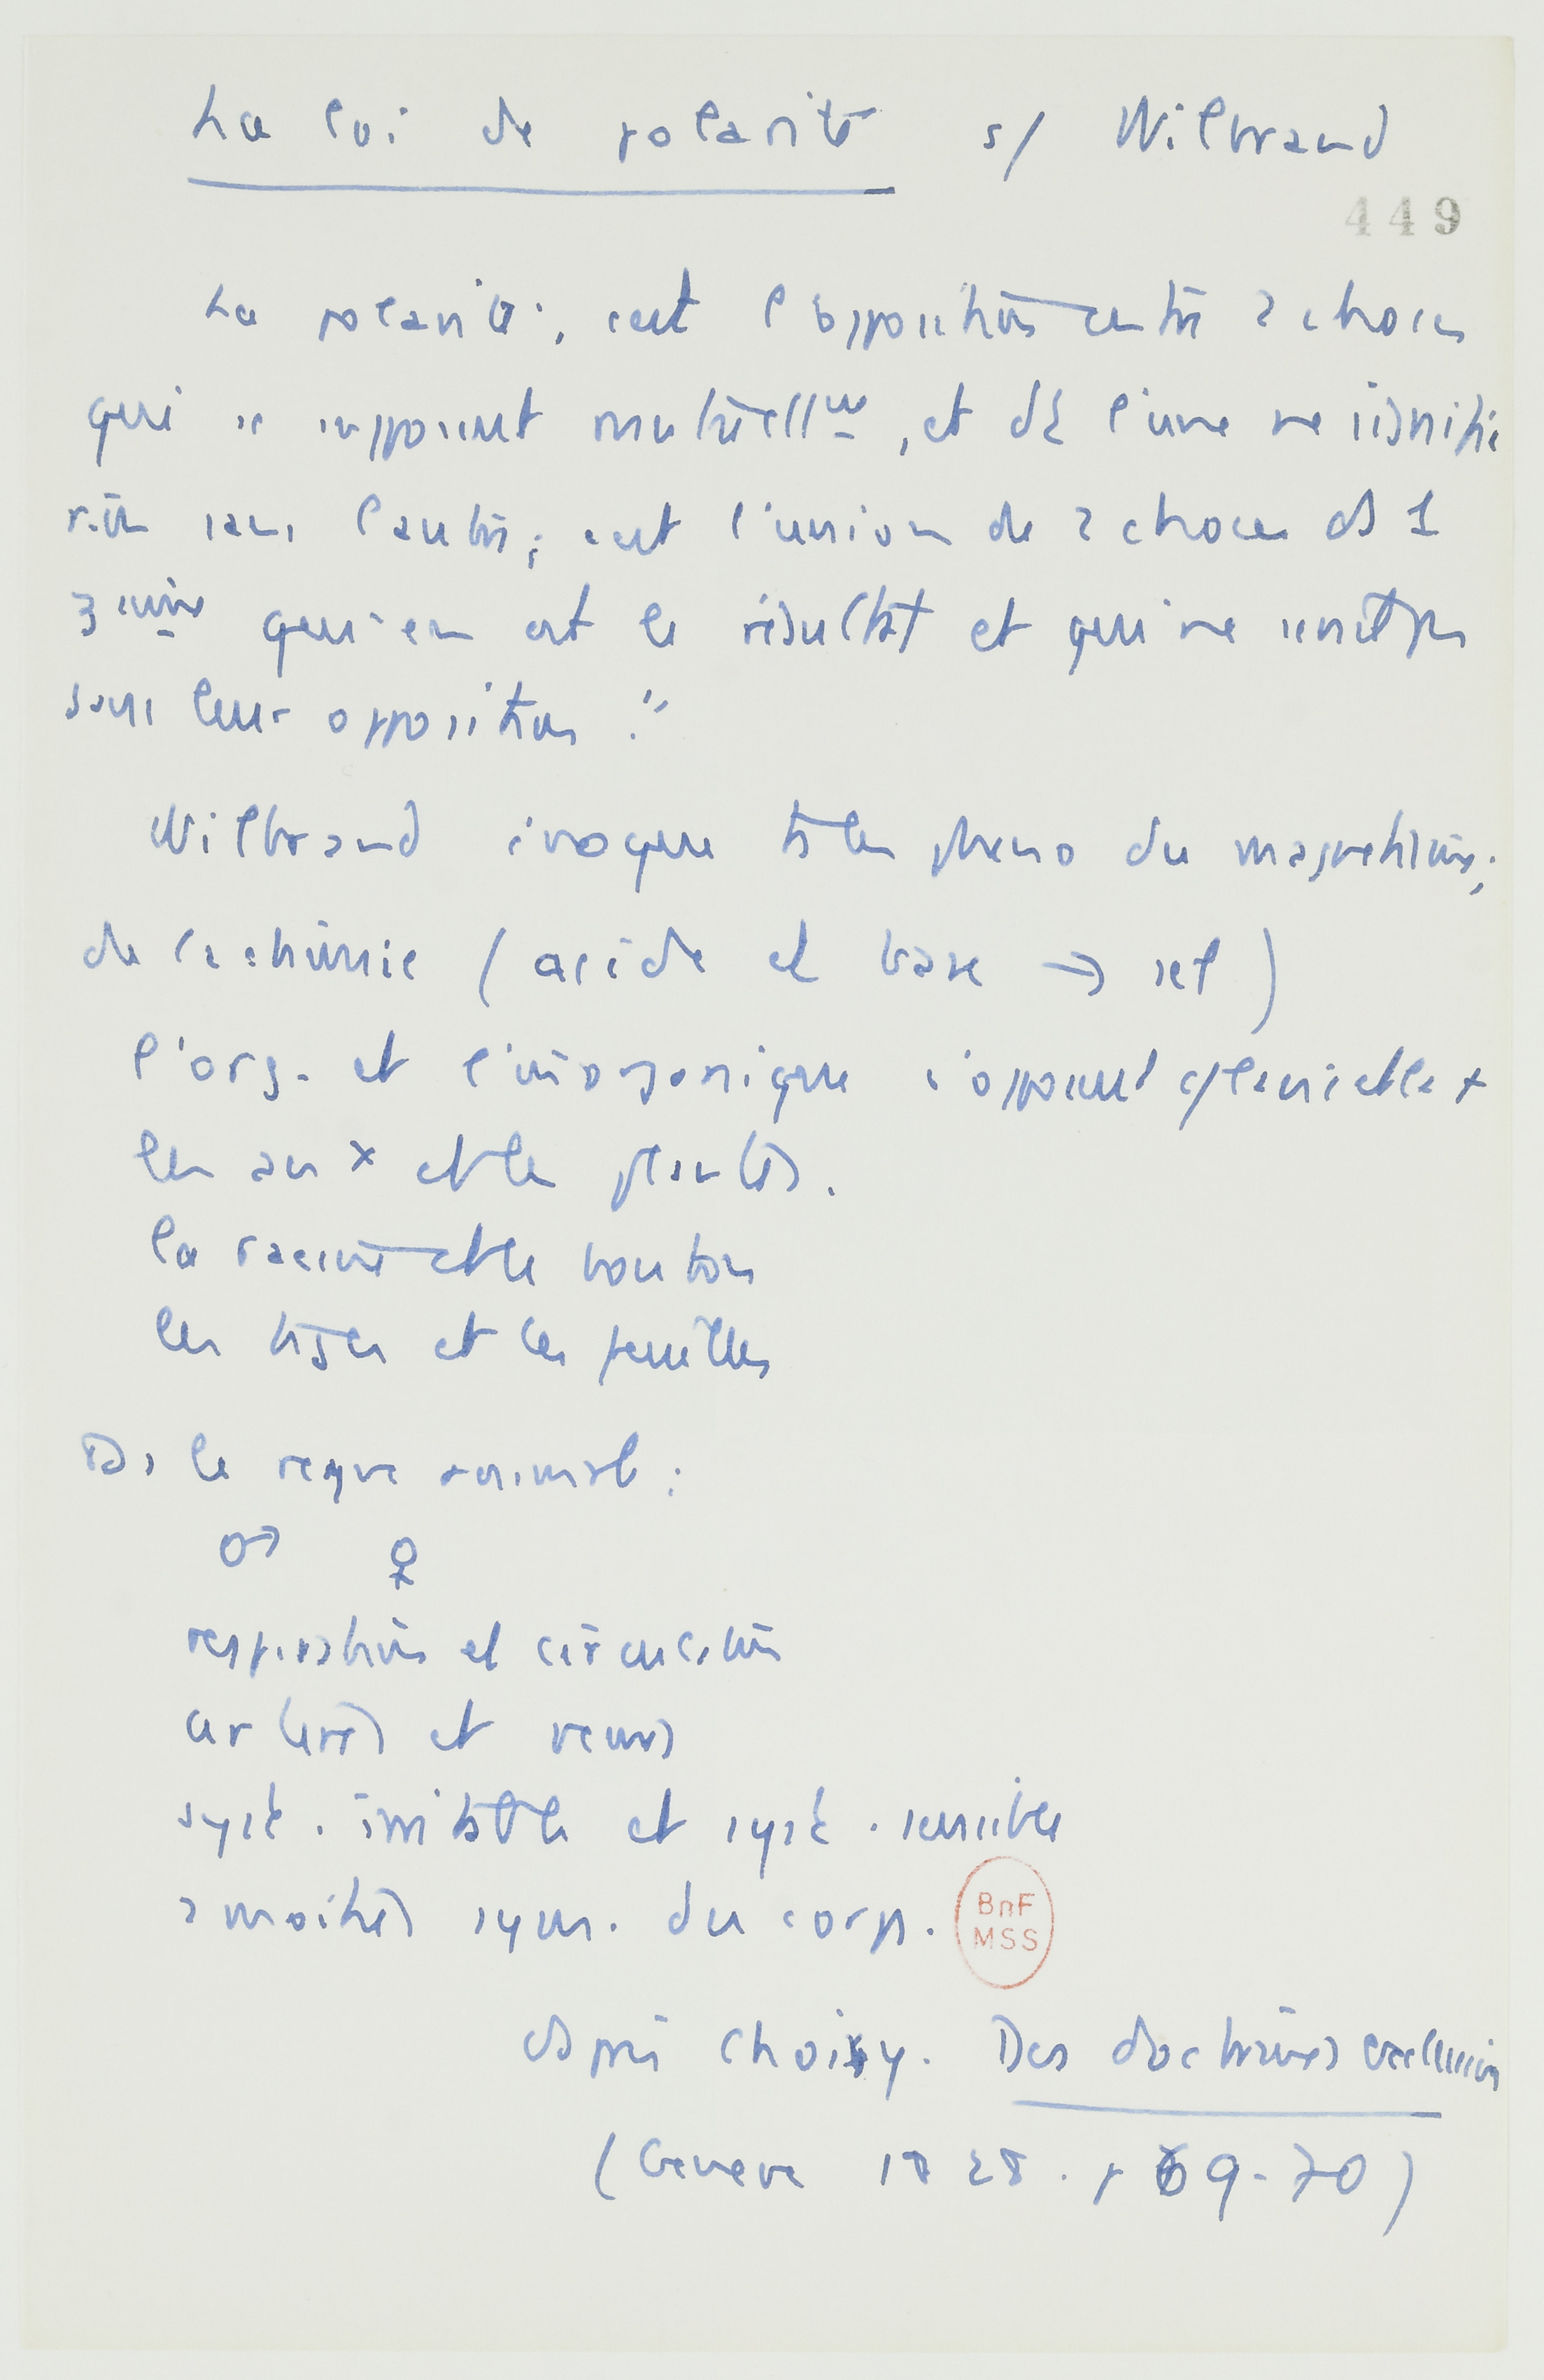 La loi de polarité s/ Wilbrand
449
La polarité, c'est l'opposition entre 2 choses
qui se supposent mutuellmt, et dt l'une ne signifie
rien sans l'autre ; c'est l'union de 2 choses ds 1
3eme qui en est le résultat et qui ne serait pas
sans leur opposition."
Wilbrand evoque ts les pheno du magnetisme ;
de la chimie (acide et base → sel)
l'org. et l'inorganique s'opposent
les aux et les plantes.
la racine et le bouton
les tiges et les feuilles
Ds le regne animal :
♂ ♀
respiration et circulation
arteres et veines
syst. irritable et syst. sensible
2 moities sym. du corps.
BnF
MSS
d'apres Choisy. Des doctrines exclusives
(Geneve 1828. p 69-70)